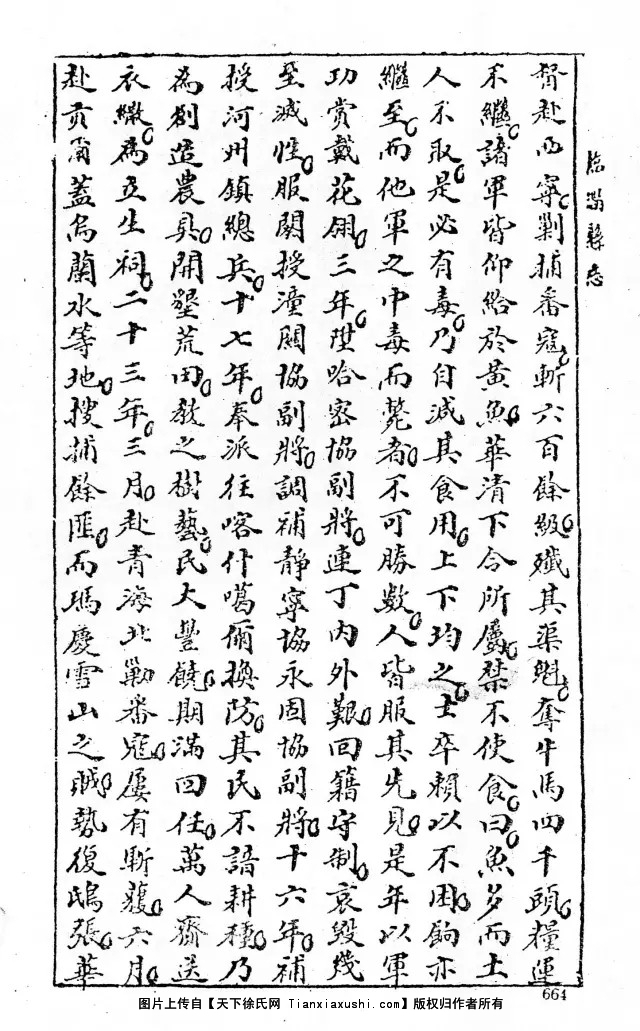 臨潁縣志
督赴西寧剿捕番寇。斬六百餘級。殲其渠魁。奪牛馬四千頭。糧運
不繼。諸軍皆仰給於黃魚。華清下令所屬。禁不使食。曰。魚多而土
人不取。是必有毒。乃自減其食用。上下均之。士卒賴以不困。餉亦
繼至。而他軍之中毒而斃者。不可勝數。人皆服其先見。是年以軍
功賞戴花翎。三年陞哈密協副將。連丁內外艱。回籍守制。哀毀幾
至滅性。服闋授潼關協副將。調補靜寧協永固協副將。十六年。補
授河州鎮總兵。十七年。奉派往喀什噶爾換防。其民不諳耕種。乃
為創造農具。開墾荒田。教之樹藝。民大豐饒。期滿回任。萬人齎送
衣繖。為立生祠。二十三年。三月。赴青海北勦番寇。屢有斬馘。六月
赴貢爾蓋烏蘭水等地。搜捕餘匪。而瑪慶雪山之賊。勢復鴟張。華
664
图片上传自【天下徐氏网 Tianxiaxushi.com】版权归作者所有